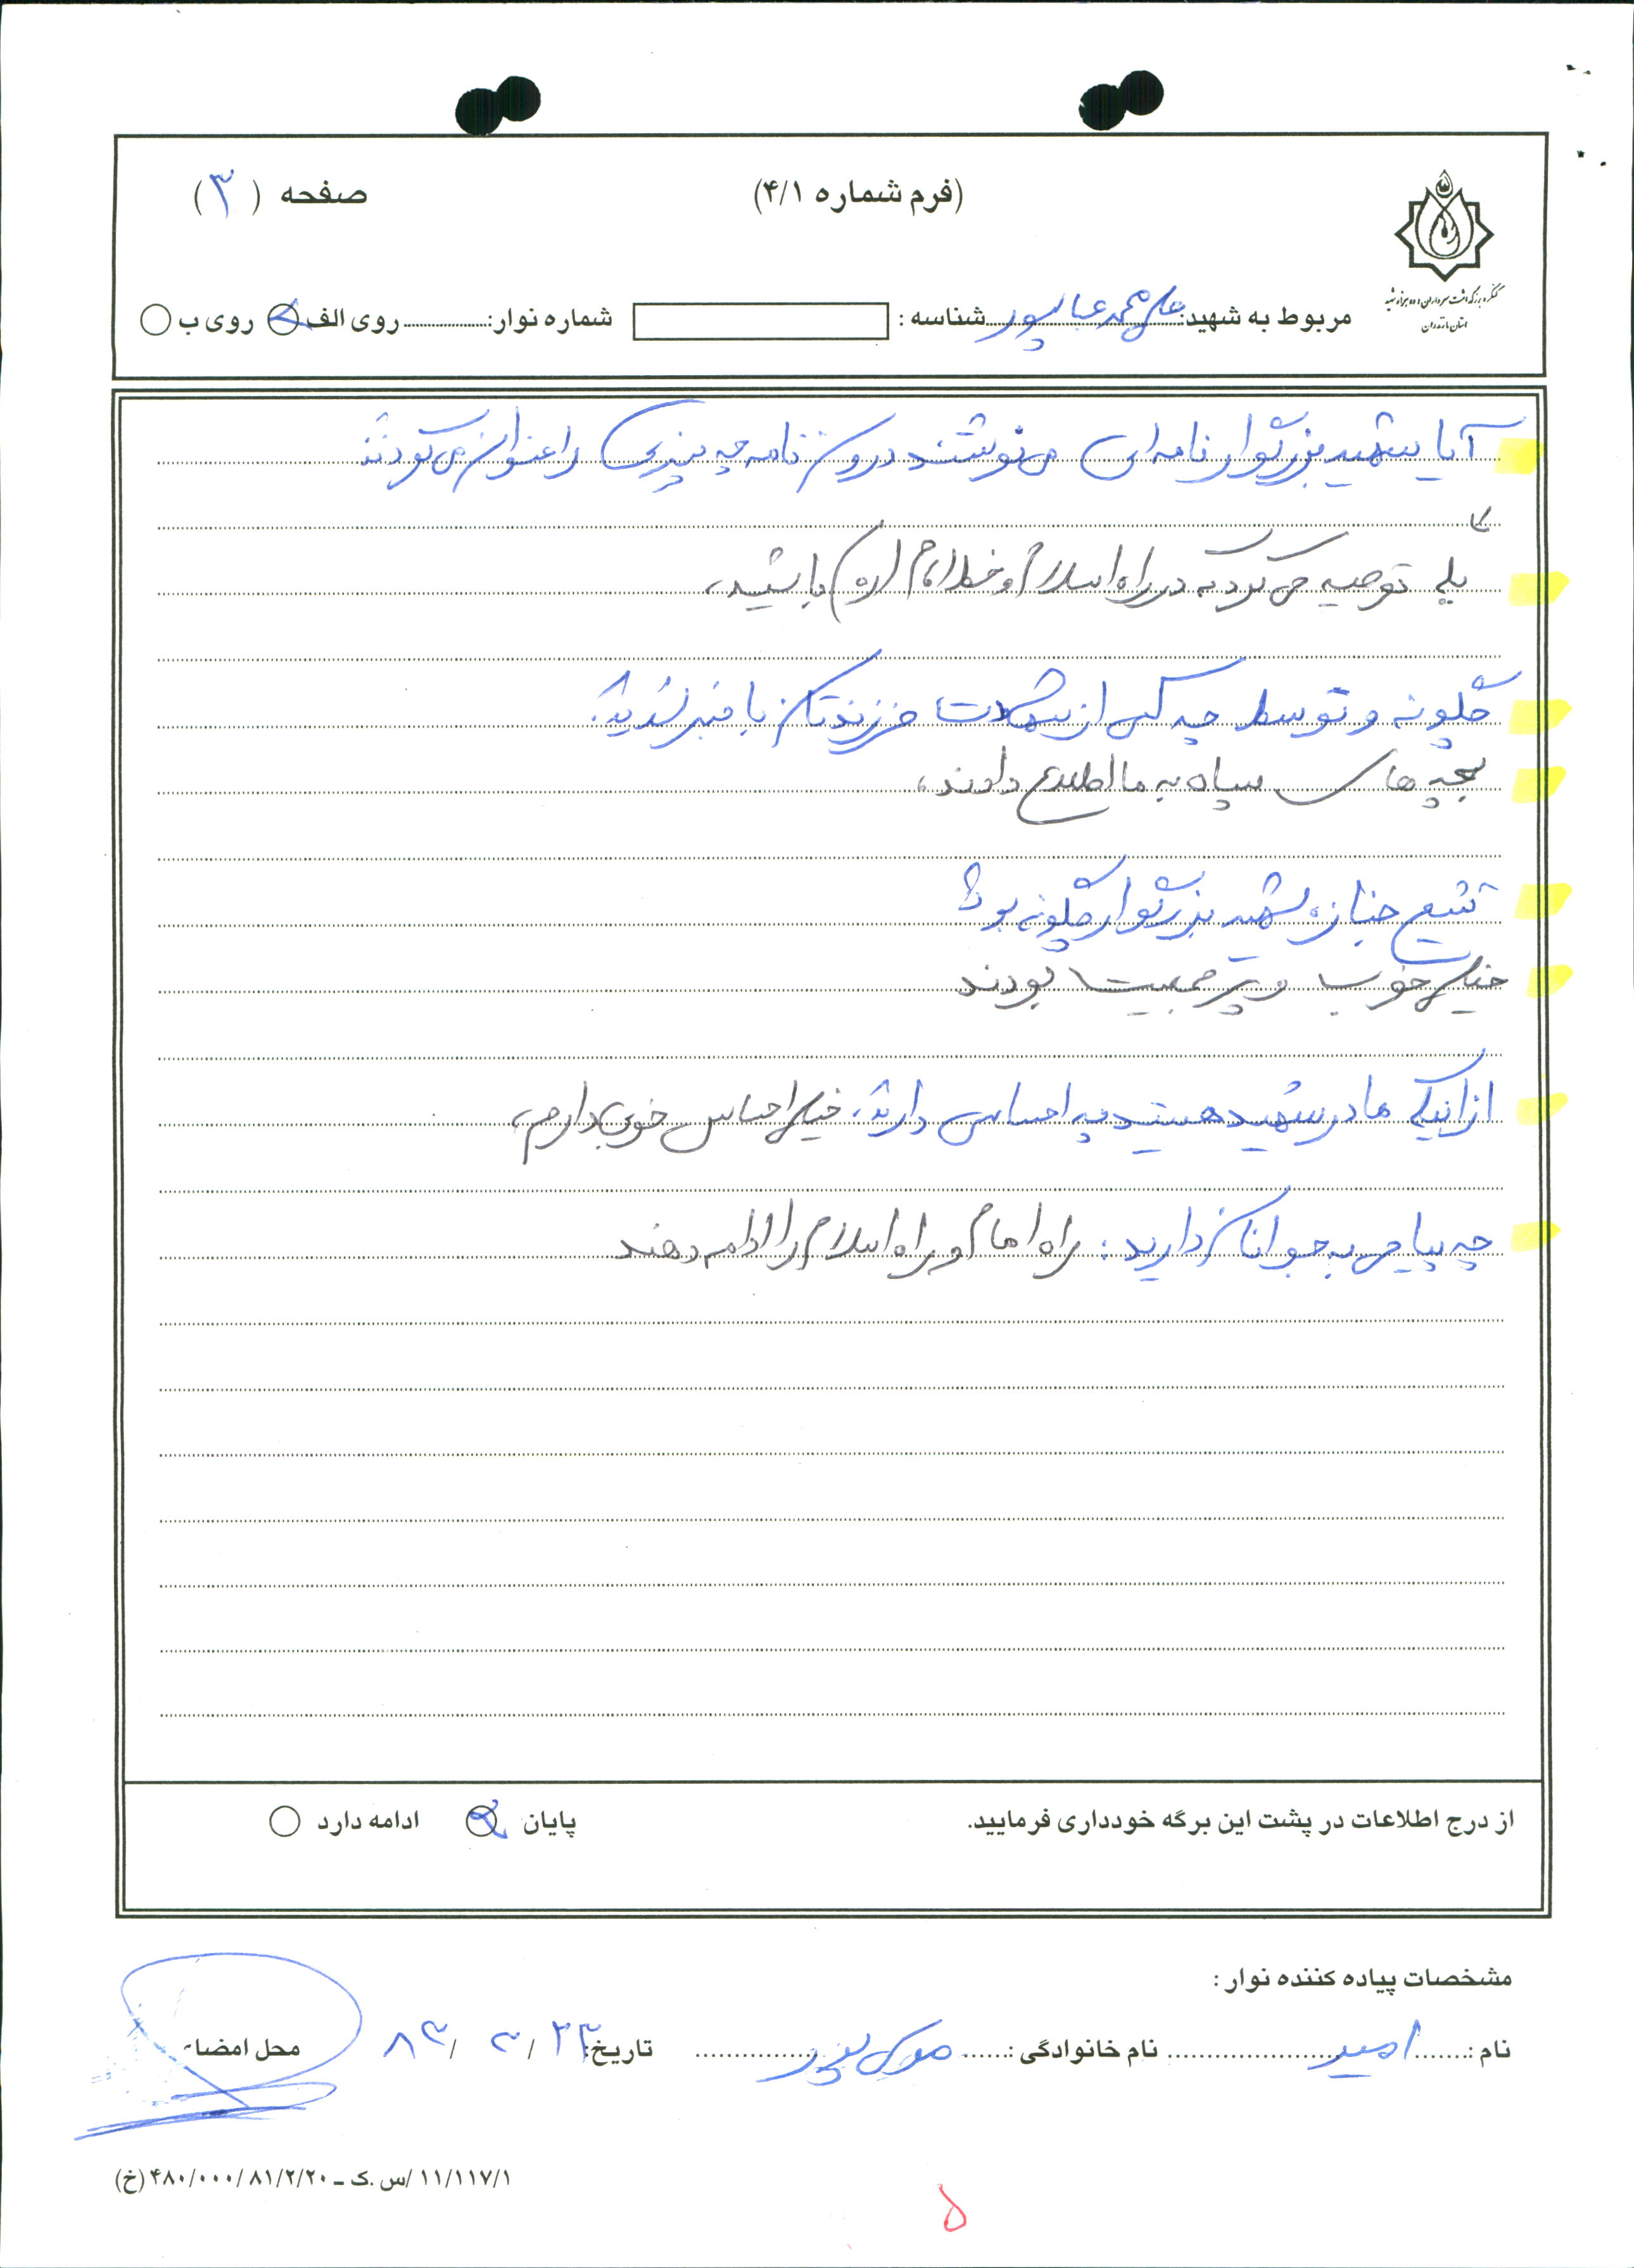 (فرم شماره ۴/۱)
صفحه (۳)
کنگره بزرگداشت سرداران و ده هزار شهید
استان مازندران
مربوط به شهید: علی محمد عباسپور شناسه : شماره نوار: روی الف روی ب
آیا شهید بزرگوار نامه ای می نوشتند در و نامه چه چیزی را عنوان می کردند
بله توصیه می کرد که در راه اسلام و خط امام (ره) باشید،
چگونه و توسط چه کسی از شهادت فرزندتان با خبر شدید؟
بچه های سپاه به ما اطلاع دادند،
تشیع جنازه شهید بزرگوار چگونه بود؟
خیلی خوب و پر جمعیت بودند
از اینکه مادر شهید هستید چه احساسی دارید؟ خیلی احساس خوبی دارم،
چه پیامی به جوانان دارید: راه امام و راه اسلام را ادامه دهند
از درج اطلاعات در پشت این برگه خودداری فرمایید.
پایان ادامه دارد
مشخصات پیاده کننده نوار :
نام : امید نام خانوادگی : موسی پور تاریخ: ۲۳ / ۳ / ۸۳ محل امضاء
۱۱/۱۱۷/۱ /س.ک ـ ۴۸۰/۰۰۰/۸۱/۲/۲۰ (خ)
۵